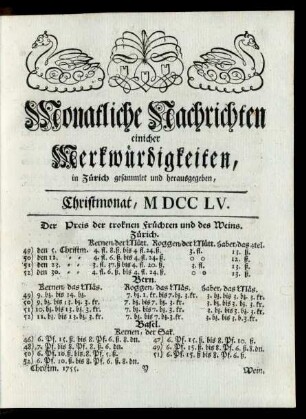 Monatliche Nachrichten
einicher
Merkwürdigkeiten,
in Zürich gesammlet und herausgegeben,
Christmonat, M DCC LV.
Der Preis der troknen Früchten und des Weins.
Zürich.
Kernen der Mütt. Roggen der Mütt. Haber das
49) den 5. Christm. 4. fl. 8. ß bis 4 fl. 24. ß. 3. fl. 13. ß.
50) den 12. 4. fl. 6. ß. bis 4. fl. 24. ß. 0 0 12. ß.
51) den 4. fl. 20. ß. 3. fl. 13. ß.
52) den 30. 4. fl. 6. ß bis 4. fl. 24. ß. 0 0
Bern.
Kernen, das Mäs. Roggen, das Mäs. Haber, das Mäs.
49) 9. bz. bis 14. bz. 7. bz. 1. kr. bis 7. bz. 3. kr.
50) 9. bz. bis 7. bz. bis 7. bz. 3. kr.
51) 10. bz. bis 7. bz. bis 7. bz. 3. kr.
52) 11. bz. bis 7. bz. bis 7. bz. 3. kr.
Basel.
Kernen, der Sak.
46) 6. Pf. 15. ß bis 8. Pf. 6. ß 8. dn. 47) 6. Pf. 15. ß. bis 8. Pf. 10. ß.
48) 7. Pf. bis 8. Pf. 8. ß. 6. dn. 49) 6. Pf. 15. ß bis 8. Pf. 6. ß. 8. dn.
50) 6. Pf. 10. ß bis 8. Pf. 5. ß. 51) 6. Pf. 15. ß bis 8. Pf. 6. ß.
52) 6. Pf. 10. ß. bis 8. Pf. 6. ß. 8. dn.
Christm. 1755. Wein.